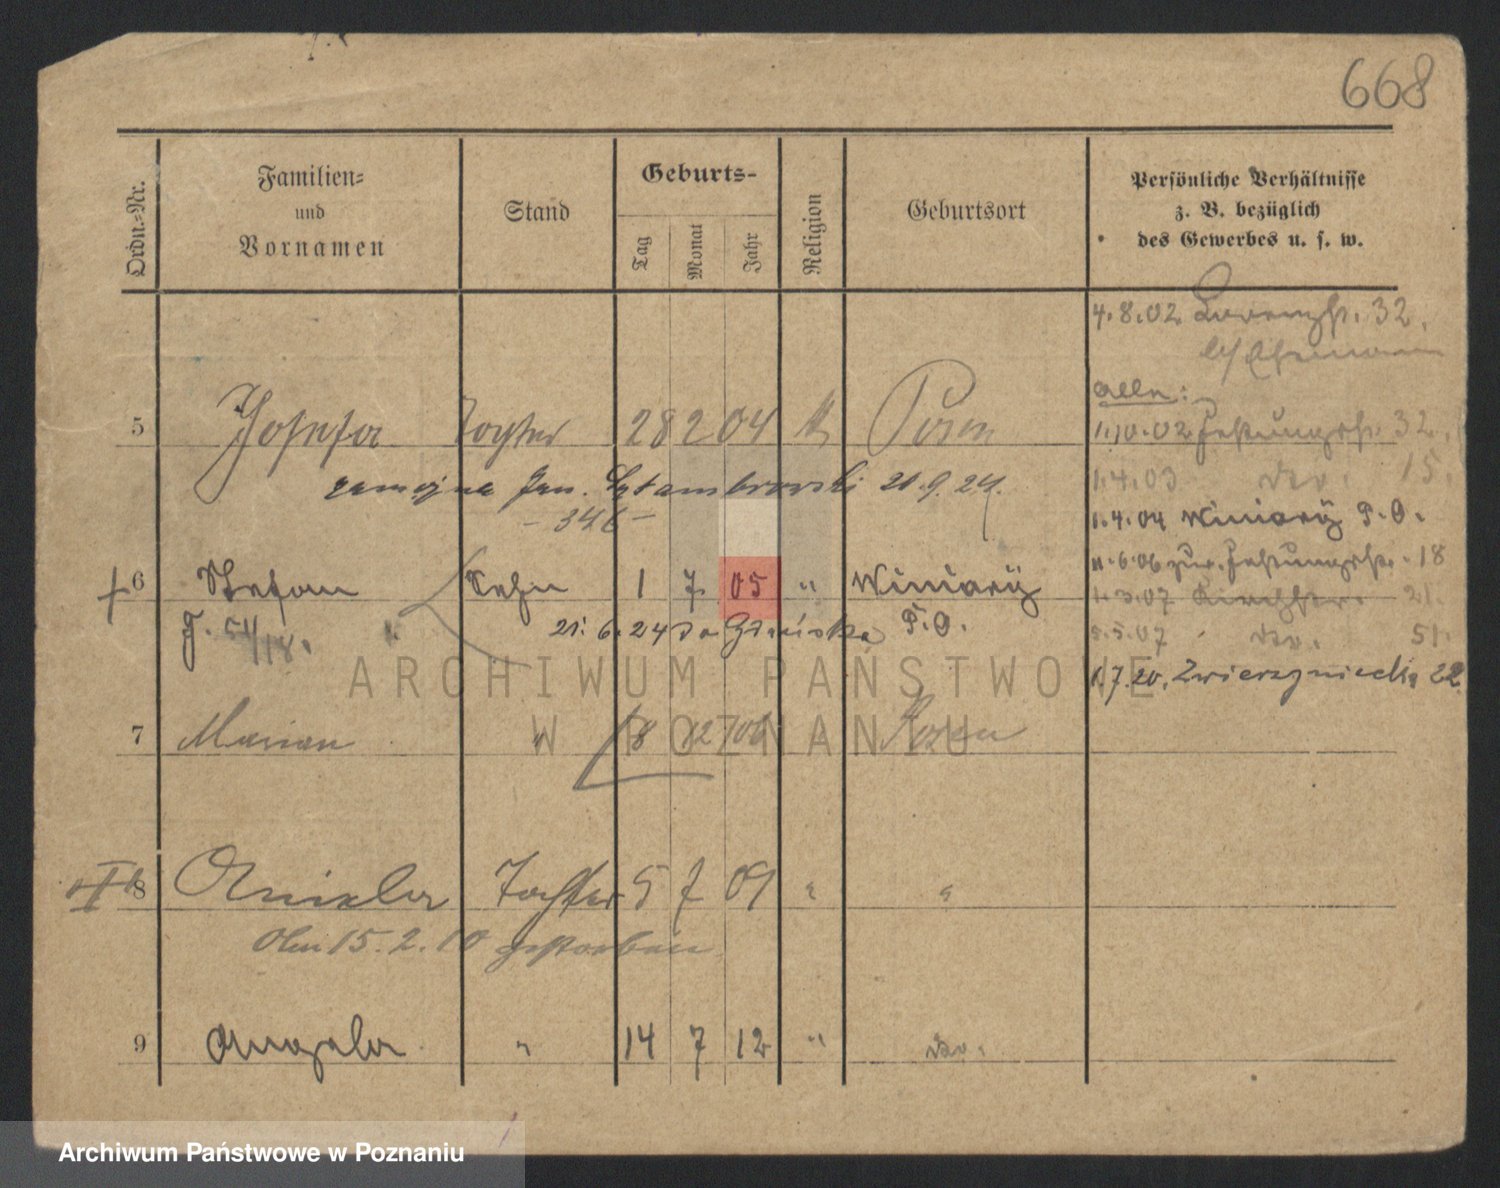 668
Ordn.-Nr.
Familien-
und
Vornamen
Stand
Geburts-
Tag
Monat
Jahr
Religion
Geburtsort
Persönliche Verhältnisse
z. B. bezüglich
des Gewerbes u. s. w.
4.8.02 Lorenzstr. 32.
b/ Ehemann
alln:
5 Josefa Tochter 28 2 04 k Posen
1.10.02 Festungsstr. 32.
zamężna Jan. Sztambrowski 21.9.24.
1.4.03 do. 15.
- 346 -
1.4.04 Winiary P.O.
6 Stefan Sohn 1 7 05 " Winiary
P.O.
11.6.06 zur. Festungsstr. 18
1.3.07 Kirchstr. 21.
J. 54/18.
21.6.24 do Gdańska
5.5.07 do. 51.
1.7.20. Zwierzyniecka 22
7 Marian " 8 12 06 " Posen
8 Aniela Tochter 5 7 09 " "
Am 15.2.10 gestorben
9 Angela " 14 7 12 " do.
ARCHIWUM PAŃSTWOWE
W POZNANIU
Archiwum Państwowe w Poznaniu